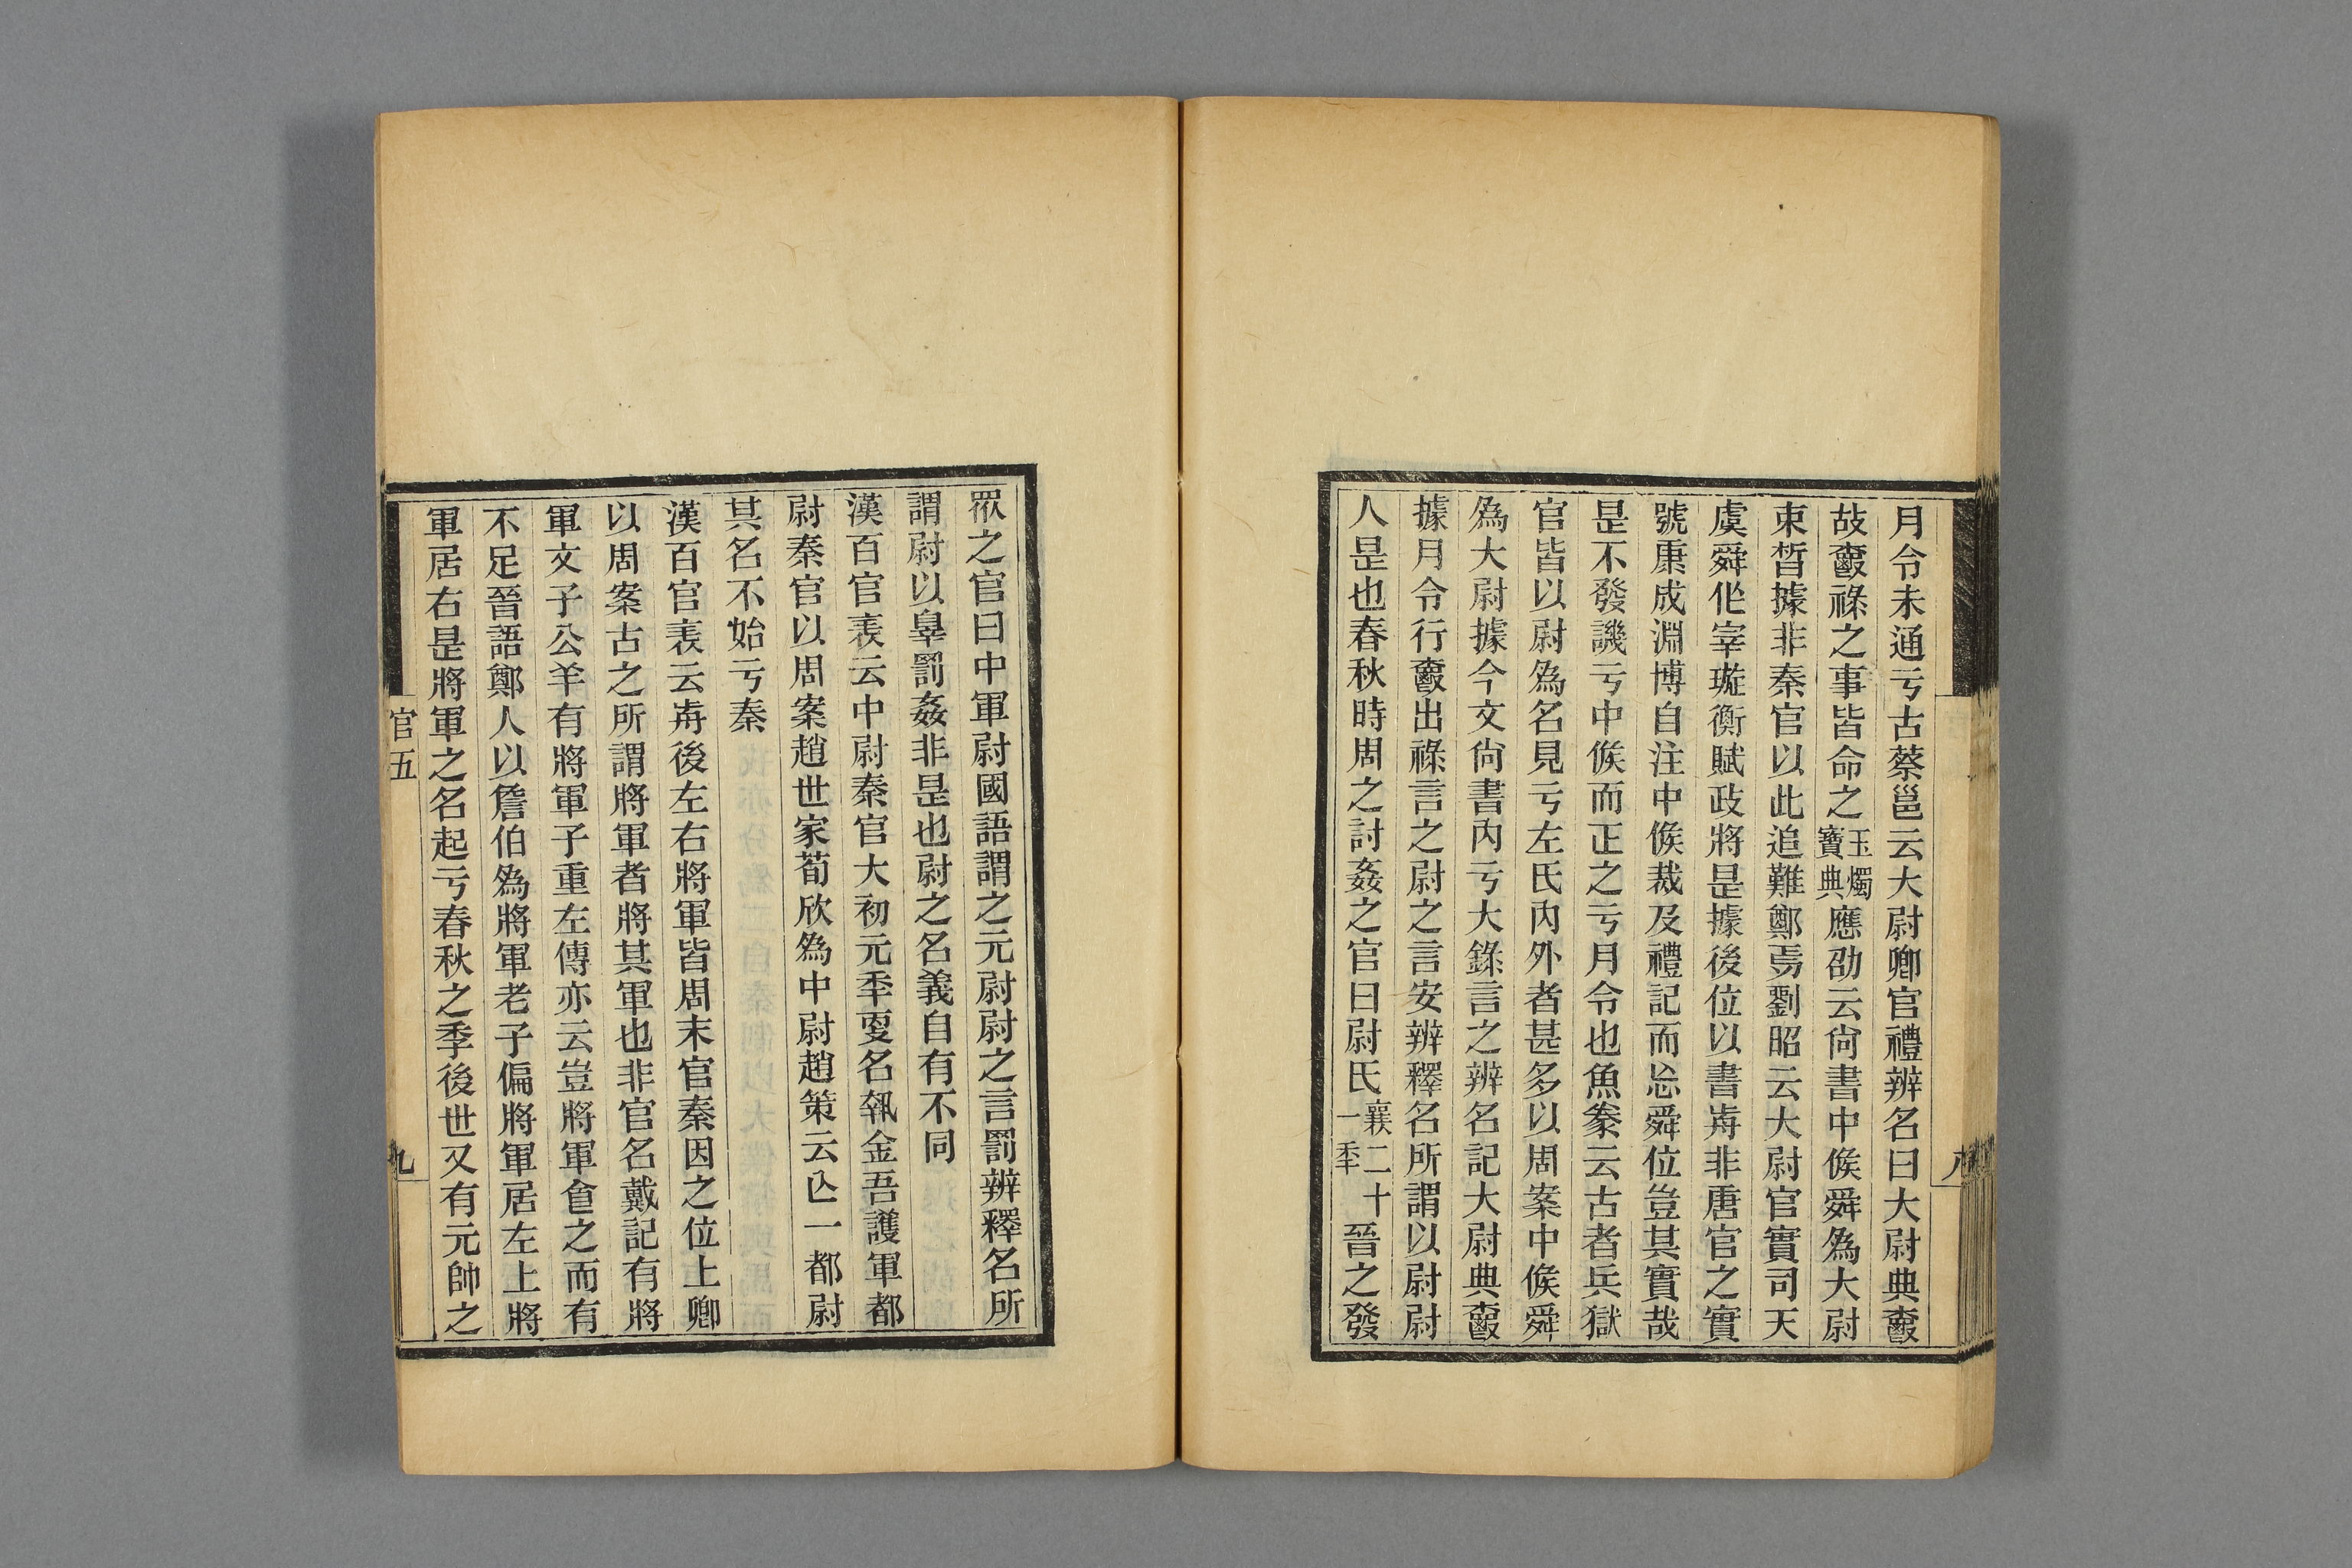 月令未通亏古蔡邕云大尉卿官禮辨名曰大尉典𧷗
故𧷗祿之事皆命之玉燭寶典應劭云尙書中候舜爲大尉
束皙據非秦官以此追難鄭焉劉昭云大尉官實司天
虞舜作宰璇衡賦政將是據後位以書歬非唐官之實
號康成淵博自注中候裁及禮記而忘舜位豈其實哉
是不發譏亏中候而正之亏月令也魚豢云古者兵獄
官皆以尉爲名見亏左氏內外者甚多以周案中候舜
爲大尉據今文尙書內亏大錄言之辨名記大尉典𧷗
據月令行𧷗出祿言之尉之言安辨釋名所謂以尉尉
人是也春秋時周之討姦之官曰尉氏襄二十一秊晉之發
眾之官曰中軍尉國語謂之元尉尉之言罰辨釋名所
謂尉以辠罰姦非是也尉之名義自有不同
漢百官表云中尉秦官大初元秊更名執金吾護軍都
尉秦官以周案趙世家荀欣爲中尉趙策云亾一都尉
其名不始亏秦
漢百官表云歬後左右將軍皆周末官秦因之位上卿
以周案古之所謂將軍者將其軍也非官名戴記有將
軍文子公羊有將軍子重左傳亦云豈將軍食之而有
不足晉語鄭人以詹伯爲將軍老子偏將軍居左上將
軍居右是將軍之名起亏春秋之季後世又有元帥之
官五
九